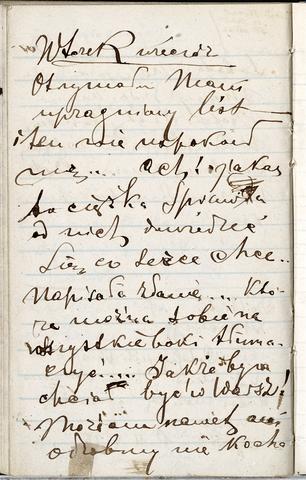 Wtorek wieczór
Otrzymała Mani
upragniony list
i ten nie uspokoił
mię... ach! jakaż
to ciężka sprawa
od nich dowiedzieć
się co serce chce..
Napisała zdanie.... Któ-
re można sobie na
wszystkie boki tłuma-
czyć..... Jakże bym
chciał być w Warsz!
Morjam nawet ani
odrobiny nie kocha